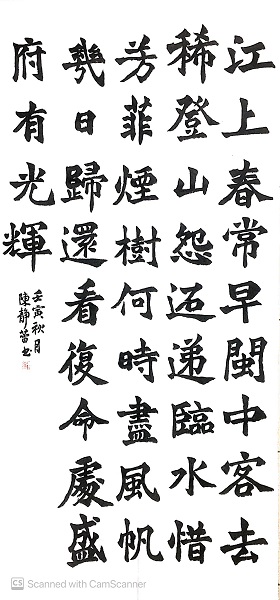 江上春常早閩中客去
稀登山怨迢递臨水惜
芳菲煙樹何時盡風帆
幾日歸還看復命處盛
府有光輝
壬寅秋月
陳靜书
CS Scanned with CamScanner